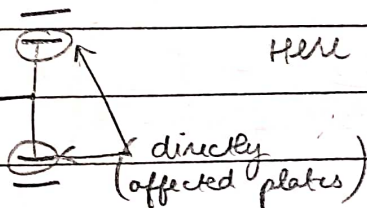 Here
directly
(affected plates)